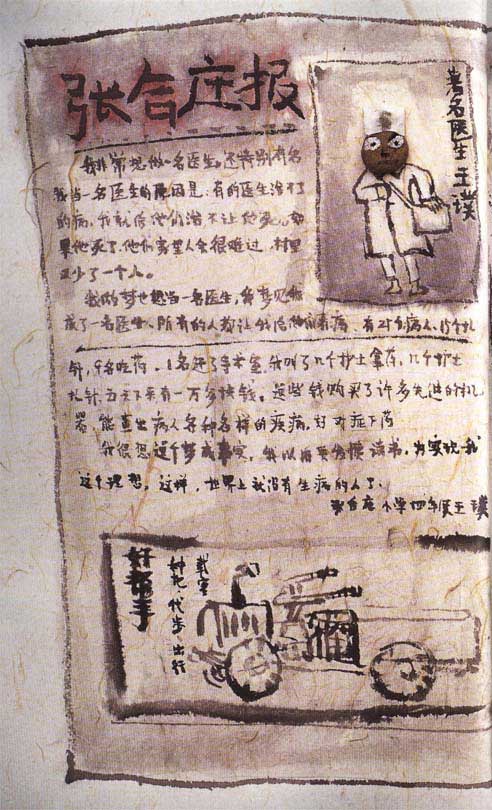 张合庄报
著名医生王璞
我非常想做一名医生。还特别有名
我当一名医生的原因是:有的医生治不了
的病,我就给他们治不让他死。如
果他死了,他们家里人会很难过,村里
又少了一个人。
我的梦也想当一名医生,我梦见我
成了一名医生、所有的人都让我给他们看病。有对台病人、
针,名吃药。1名进了手术室,我叫了几个护士拿药,几个护士
扎针,五天下来有一万多块钱。这些钱购买了许多先进的
器,能查出病人各种各样的疾病,好对症下药
我很想这个梦成事实,我以后要发愤读书,为实现我
这个理想。这样,世界上就没有生病的人了。
张合庄小学四年级王璞
好帮手
载重
种地、代步、出行